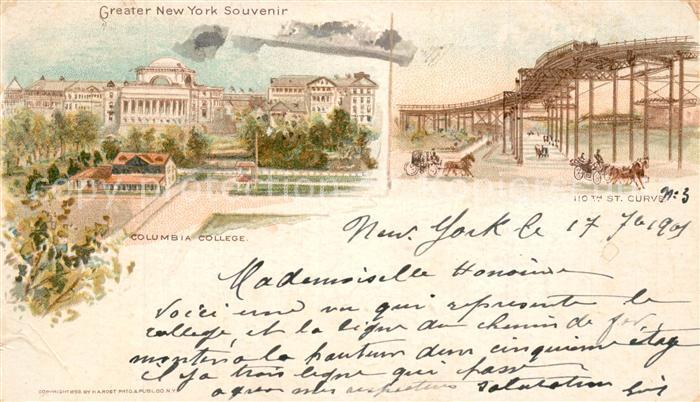 Greater New York Souvenir
COLUMBIA COLLEGE.
110TH ST. CURVE
No 3
New York le 17 7bre 1901
Mademoiselle Honorine
Voici une vu qui represente le
college et la ligne du chemin de fer
montés a la hauteur d'un cinquieme étag
il y a trois ligne qui passe
agreer mes respectueus salutation
COPYRIGHT 1898 BY H.A.ROST PRTG.& PUBLG.CO.N.Y.